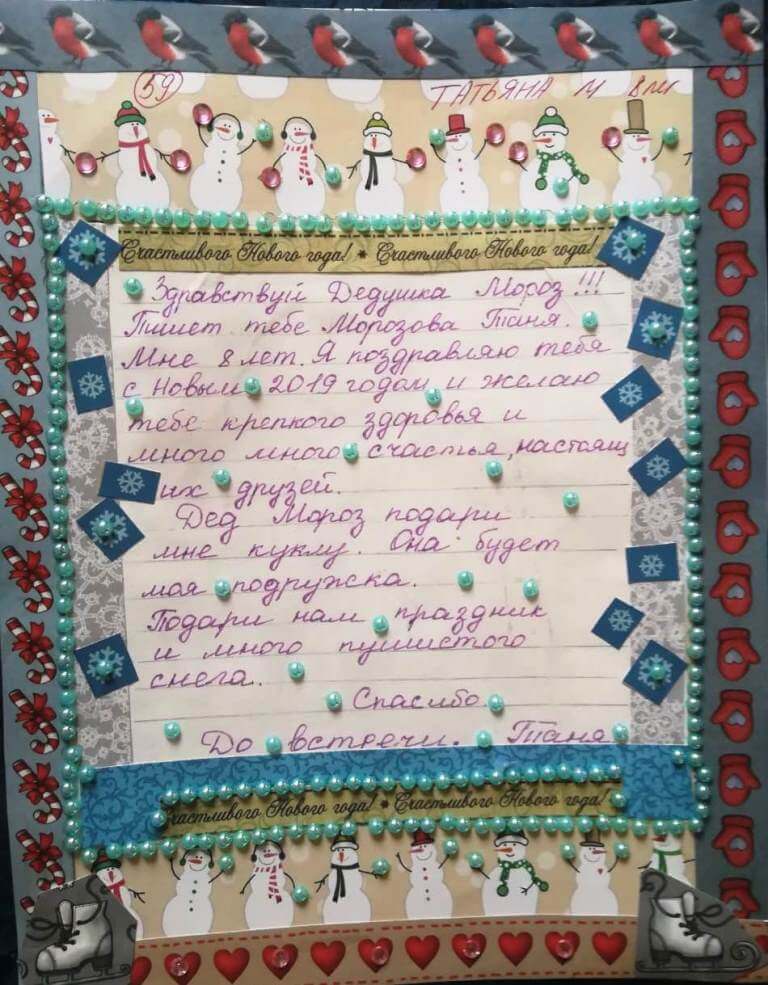 59
ТАТЬЯНА М 8 лет
Счастливого Нового года! * Счастливого Нового года!
Здравствуй Дедушка Мороз!!!
Пишет тебе Морозова Таня.
Мне 8 лет. Я поздравляю тебя
с Новым 2019 годом и желаю
тебе крепкого здоровья и
много много счастья, настоящ
их друзей.
Дед Мороз подари
мне куклу. Она будет
моя подружка.
Подари нам праздник
и много пушистого
снега.
Спасибо.
До встречи. Таня
частливого Нового года! * Счастливого Нового года!